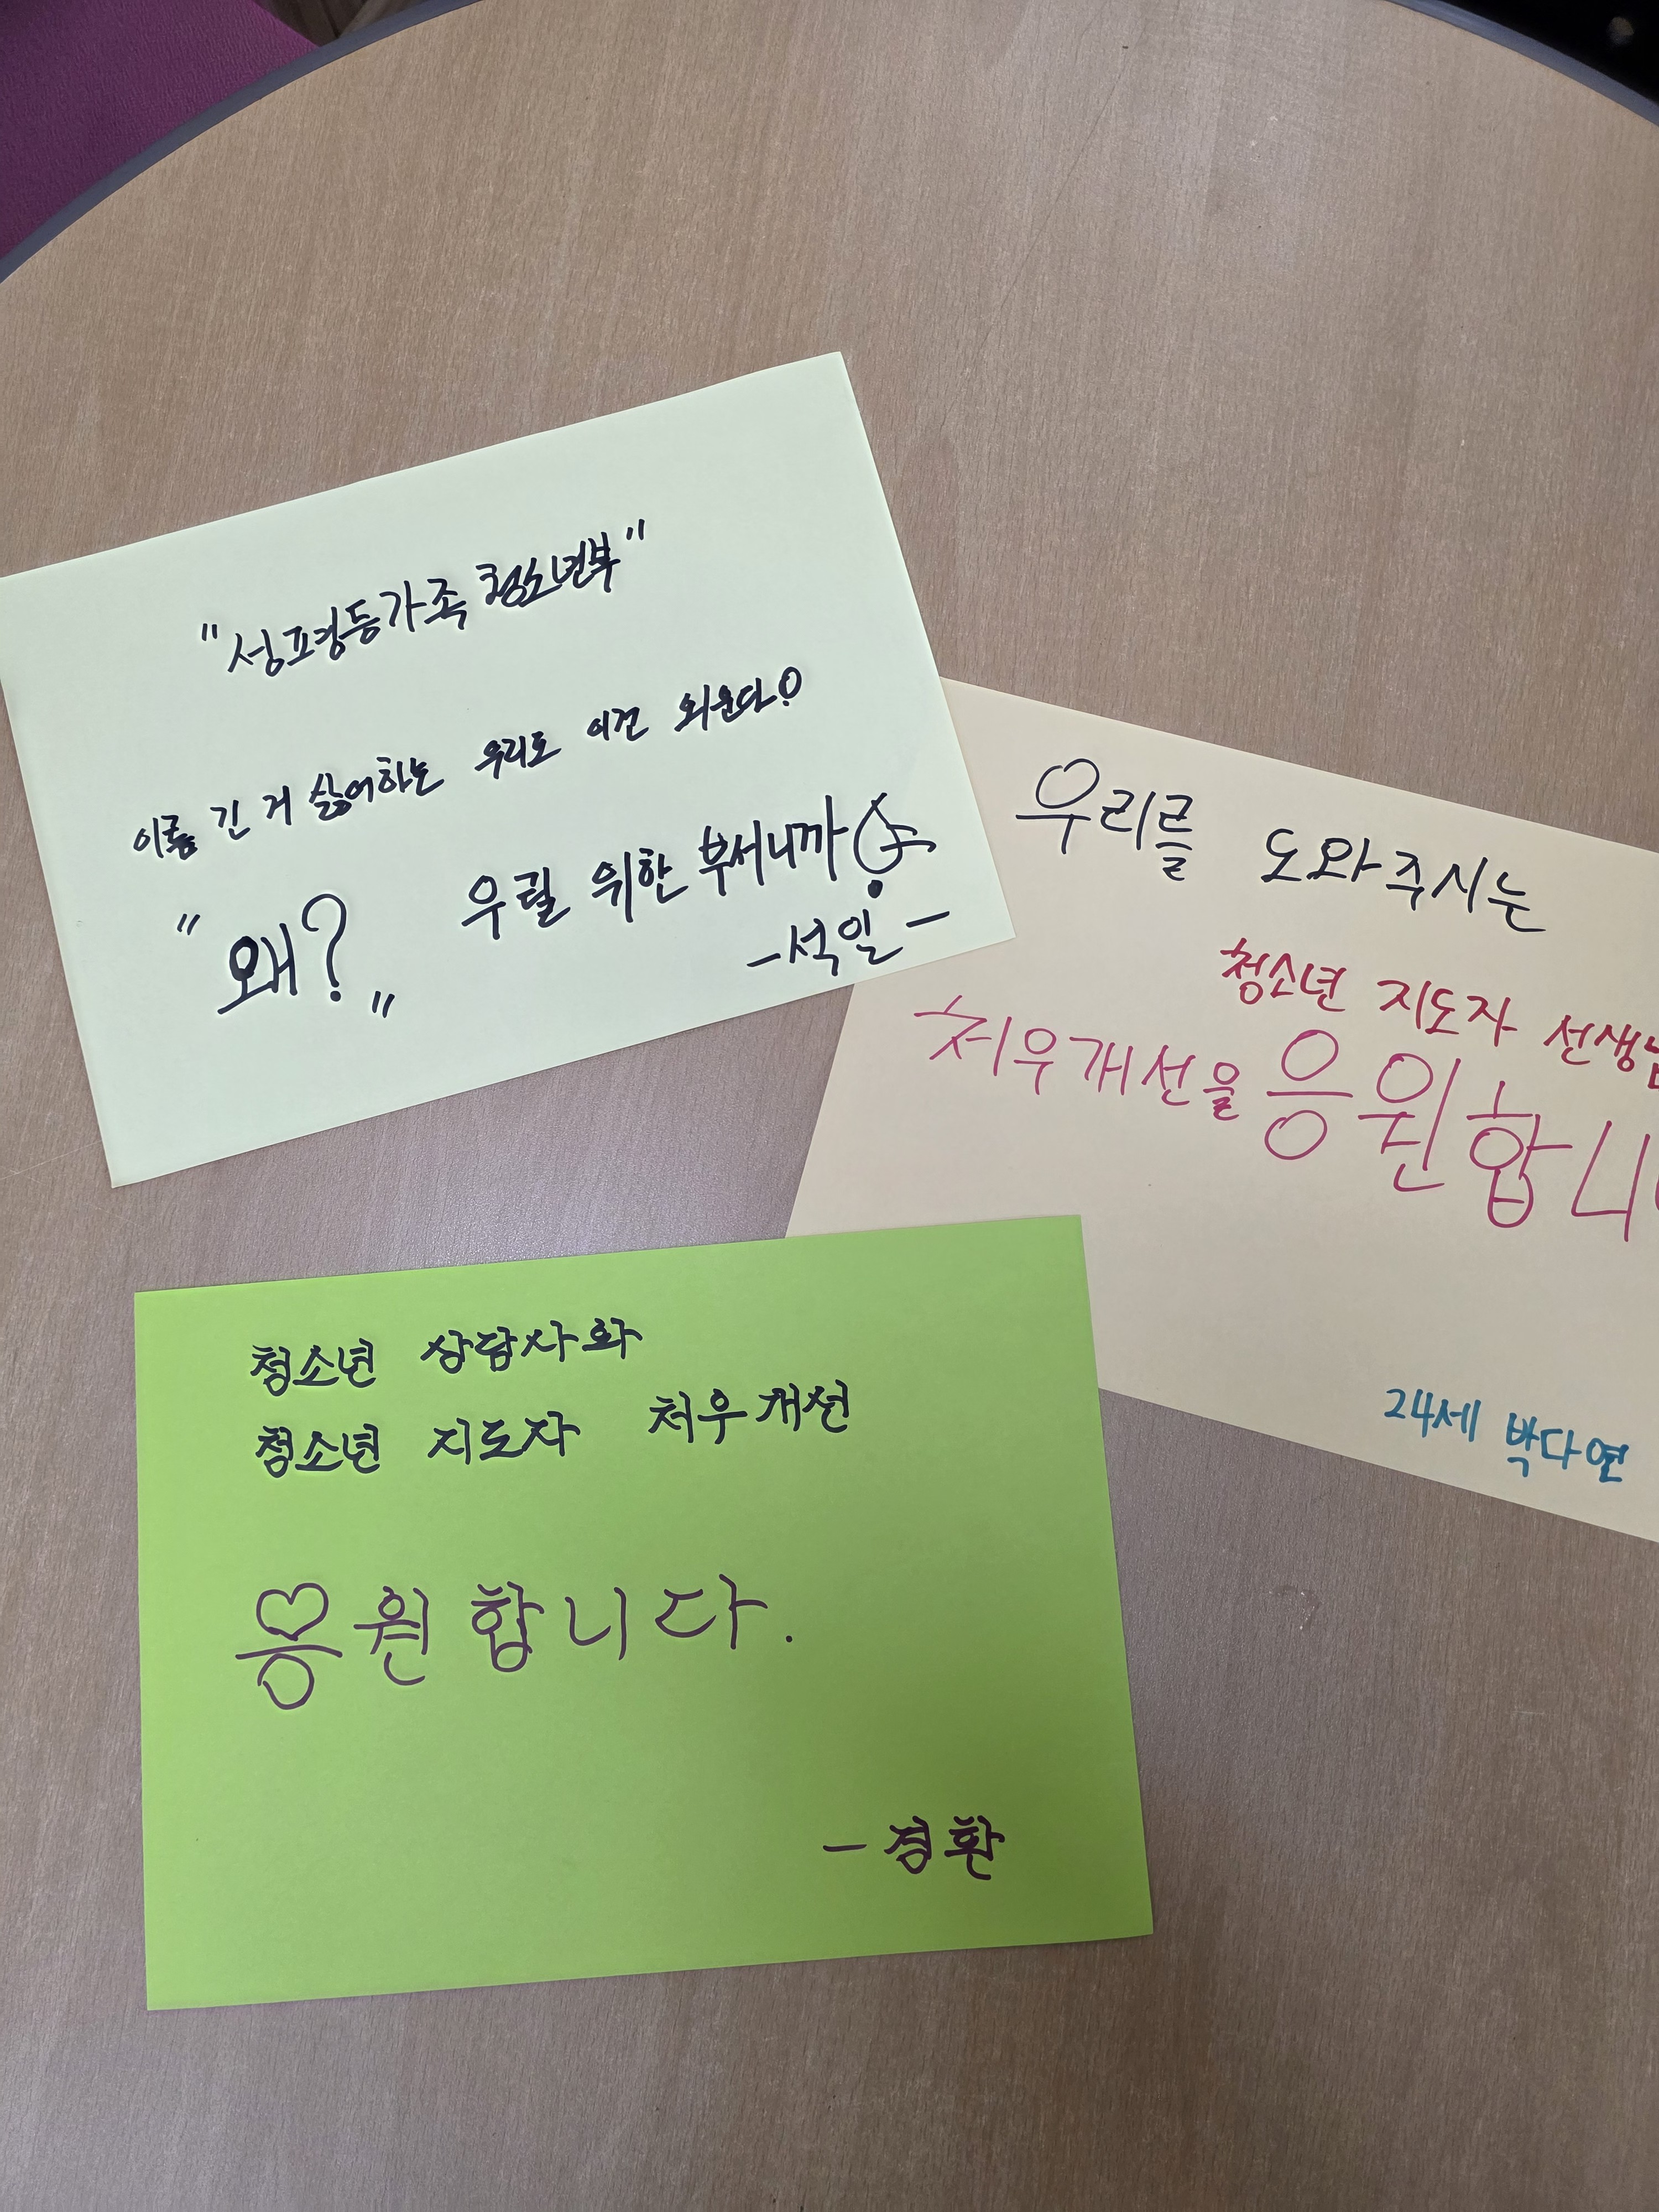 "성평등가족청소년부"
이름 긴 거 싫어하는 우리도 이건 외운다!
"왜?" 우릴 위한 부서니까!
-석일-
우리를 도와주시는
청소년 지도자 선생님
처우개선을 응원합니
24세 박다연
청소년 상담사와
청소년 지도자 처우개선
응원합니다.
- 경환